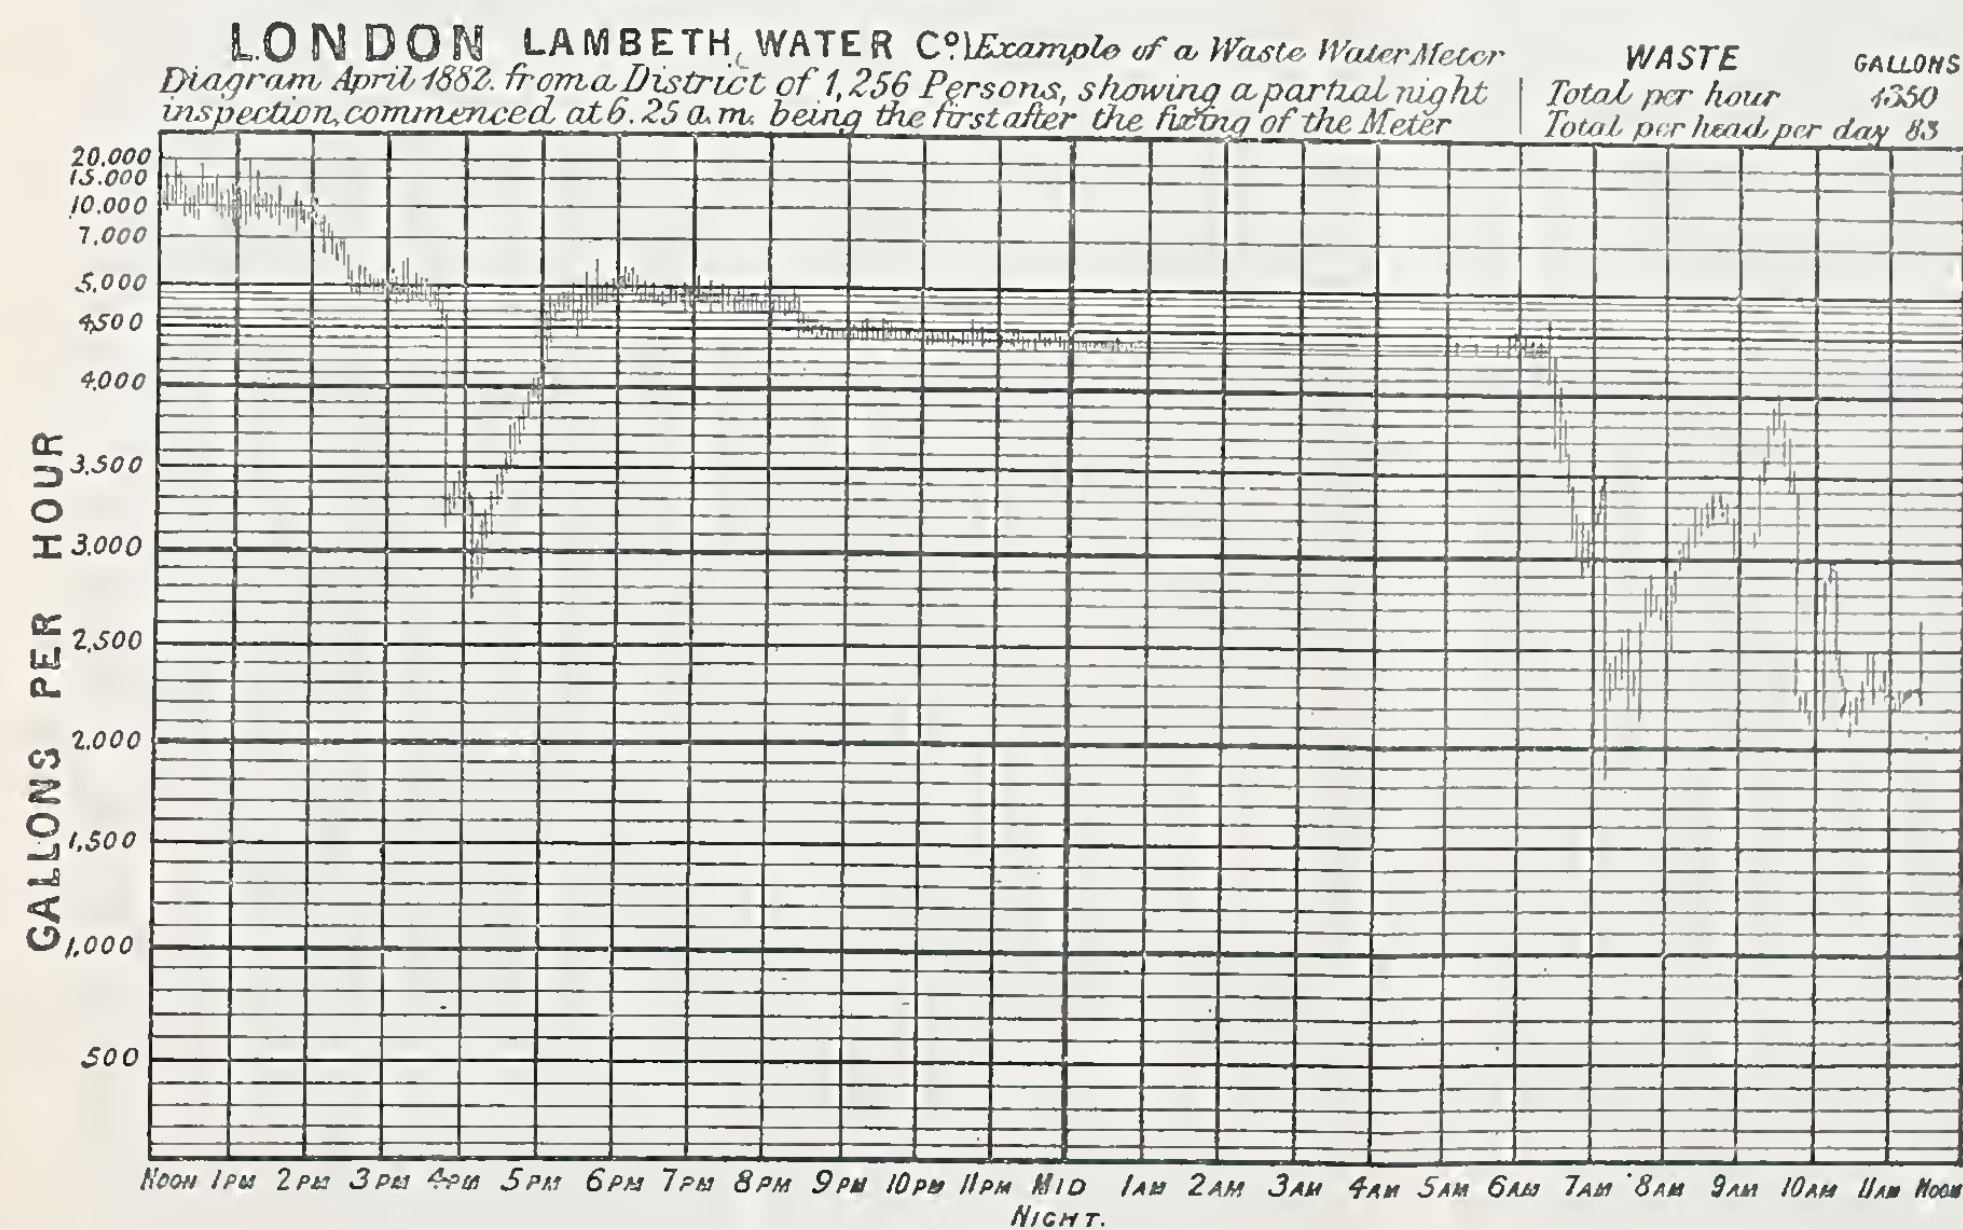 LONDON LAMBETH WATER Co.) Example of a Waste Water Meter
Diagram April 1882. from a District of 1,256 Persons, showing a partial night
inspection, commenced at 6.25 a.m. being the first after the fixing of the Meter
WASTE GALLONS
Total per hour 4350
Total per head per day 83
GALLONS PER HOUR
20.000
15.000
10.000
7,000
5,000
4,500
4,000
3,500
3,000
2,500
2,000
1,500
1,000
500
NOON 1PM 2PM 3PM 4PM 5PM 6PM 7PM 8PM 9PM 10PM 11PM MID 1AM 2AM 3AM 4AM 5AM 6AM 7AM 8AM 9AM 10AM 11AM NOON
NIGHT.